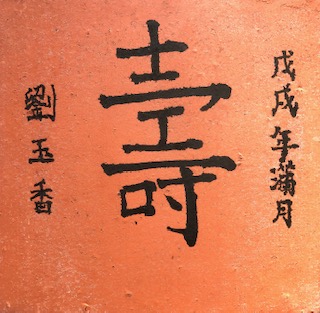 戊戌年滿月
壽
劉玉香